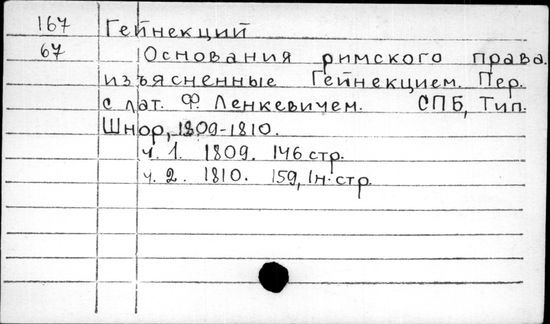 167 Гейнекций
67 Основания римского права.
изъясненные Гейнекцием. Пер.
с лат. Ф. Ленкевичем. СПБ, Тип.
Шнор, 1809-1810.
ч. 1. 1809. 146 стр.
ч. 2. 1810. 159, 1н. стр.